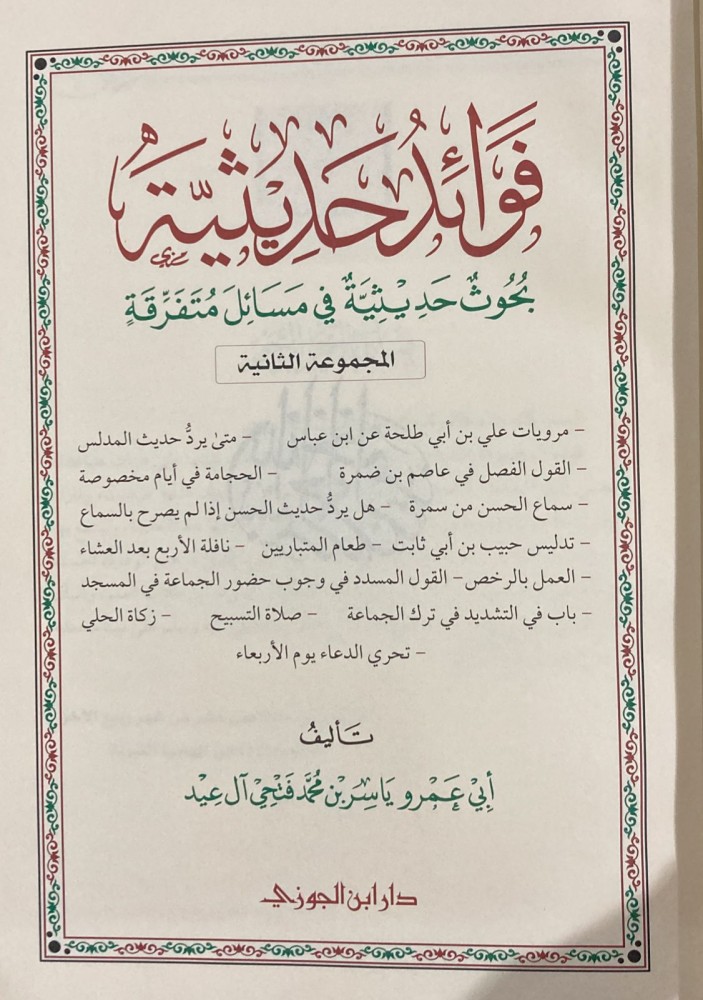 فَوَائِدُ حَدِيْثِيَّةٌ
بُحُوثٌ حَدِيْثِيَّةٌ فِي مَسَائِلَ مُتَفَرِّقَةٍ
المجموعة الثانية
- مرويات علي بن أبي طلحة عن ابن عباس - متىٰ يردُّ حديث المدلس
- القول الفصل في عاصم بن ضمرة - الحجامة في أيام مخصوصة
- سماع الحسن من سمرة - هل يردُّ حديث الحسن إذا لم يصرح بالسماع
- تدليس حبيب بن أبي ثابت - طعام المتباريين - نافلة الأربع بعد العشاء
- العمل بالرخص - القول المسدد في وجوب حضور الجماعة في المسجد
- باب في التشديد في ترك الجماعة - صلاة التسبيح - زكاة الحلي
- تحري الدعاء يوم الأربعاء
تَأليفُ
أَبِيْ عَمْرو يَاسِر بْن مُحَمَّد فَتْحِيْ آل عِيد
دار ابن الجوزي